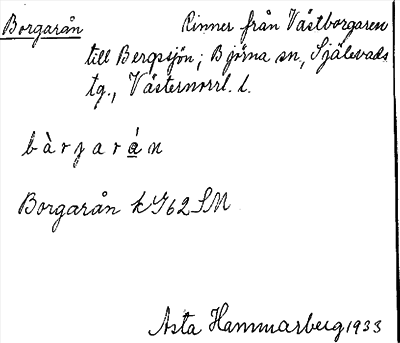 Borgarån Rinner från Västborgaren
till Bergsjön; Björna sn, Själevads
tg., Västernorrl. l.
bàrjarán
Borgarån kG62SM
Asta Hammarberg 1933